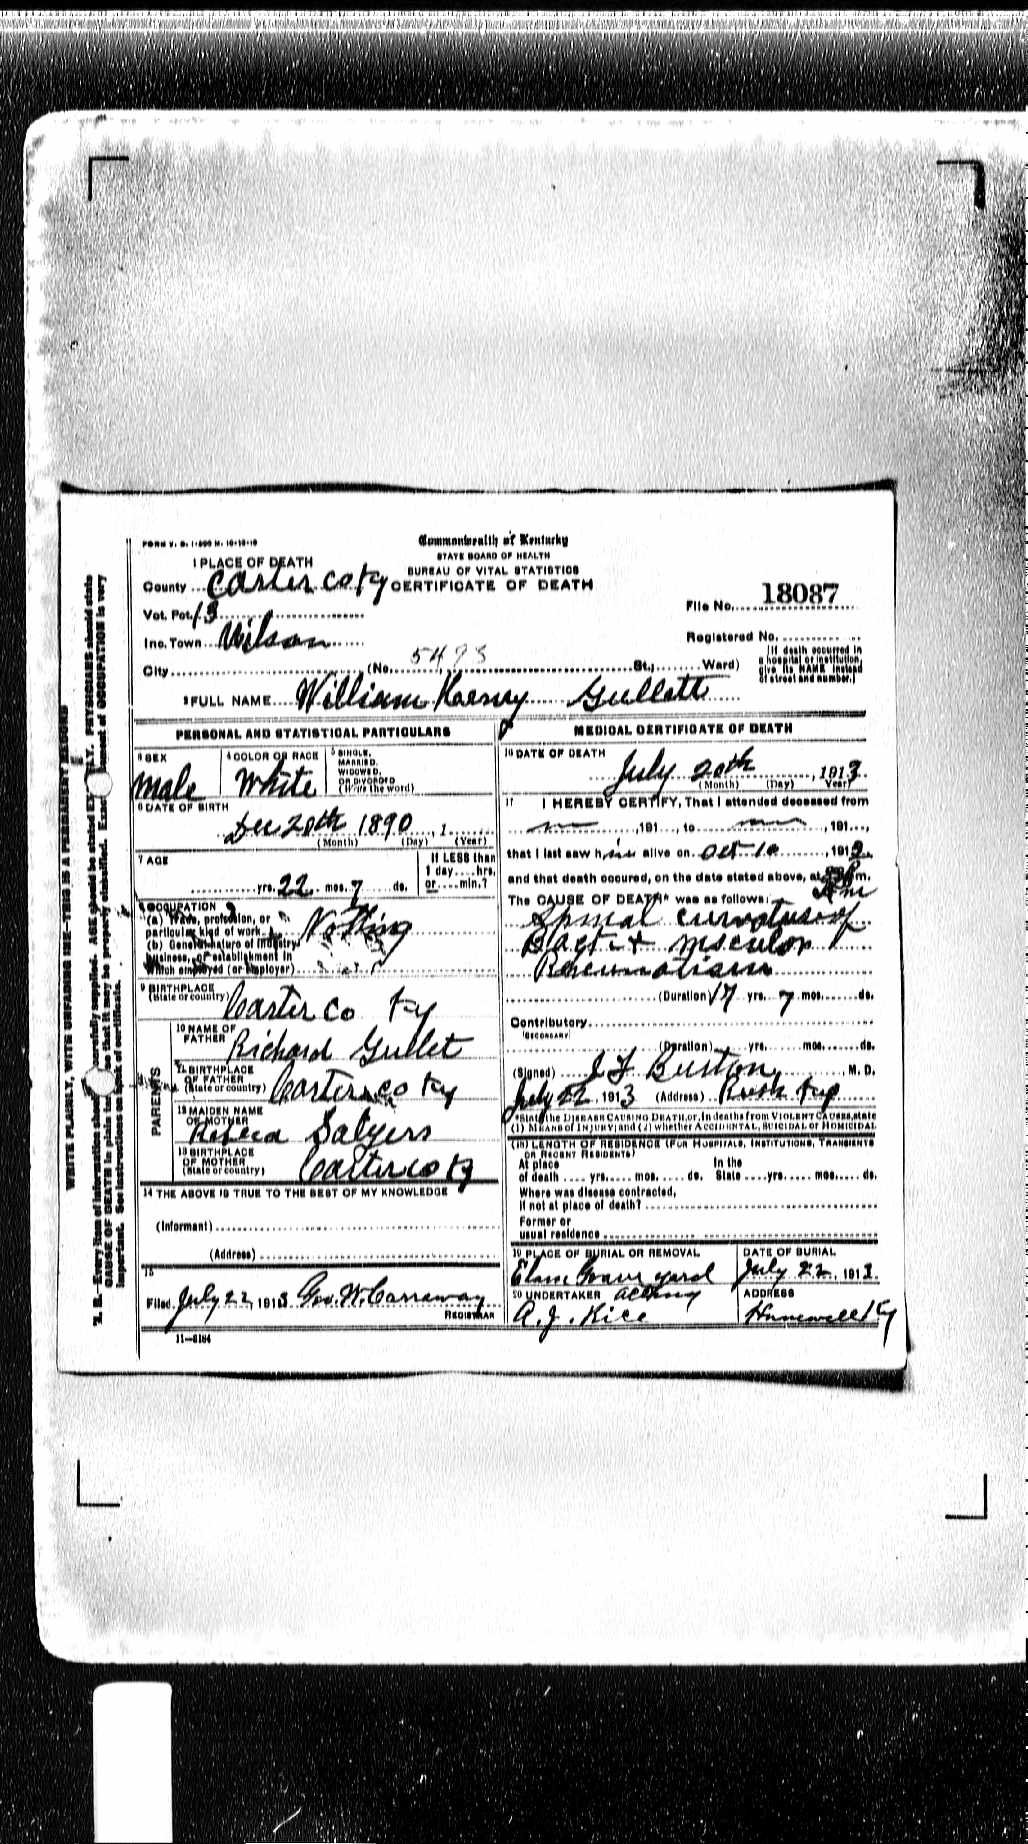 FORM V. S. 1-500 M. 10-18-10
Commonwealth of Kentucky
STATE BOARD OF HEALTH
BUREAU OF VITAL STATISTICS
CERTIFICATE OF DEATH
1 PLACE OF DEATH
County Carter co Ky
Vot. Pct. 13
Inc. Town Wilson
City (No. 5493 St.; Ward)
File No. 18087
Registered No.
[If death occurred in
a hospital or institution,
give its NAME instead
of street and number.]
2 FULL NAME William Gullett
PERSONAL AND STATISTICAL PARTICULARS
3 SEX
male
4 COLOR OR RACE
White
5 SINGLE,
MARRIED,
WIDOWED,
OR DIVORCED
(Write the word)
6 DATE OF BIRTH
Dec 20th 1890, 1
(Month) (Day) (Year)
7 AGE
yrs. 22 mos. 7 ds.
If LESS than
1 day....hrs.
or....min.?
8 OCCUPATION
(a) Trade, profession, or
particular kind of work
(b) General nature of industry
business, or establishment in
which employed (or employer)
Nothing
9 BIRTHPLACE
(State or country)
Carter Co Ky
PARENTS
10 NAME OF
FATHER
Richard Gullet
11 BIRTHPLACE
OF FATHER
(State or country)
Carter co Ky
12 MAIDEN NAME
OF MOTHER
Salyers
13 BIRTHPLACE
OF MOTHER
(State or country)
Carter co Ky
14 THE ABOVE IS TRUE TO THE BEST OF MY KNOWLEDGE
(Informant)
(Address)
15
Filed July 22, 1913 Geo. W. Carraway
REGISTRAR
11-6184
MEDICAL CERTIFICATE OF DEATH
16 DATE OF DEATH
July 20th, 1913
(Month) (Day) Year)
17 I HEREBY CERTIFY, That I attended deceased from
,191 , to ,191...,
that I last saw him alive on Oct 10, 191
and that death occured, on the date stated above, at m.
The CAUSE OF DEATH* was as follows:
Spinal curvature of
Back + muscular
Rheumatism
(Duration) 17 yrs. 7 mos. ds.
Contributory
(SECONDARY)
(Duration) yrs. mos. ds.
(Signed) J F Burton, M. D.
July 22, 1913 (Address) Rush Ky
*State the DISEASE CAUSING DEATH, or, in deaths from VIOLENT CAUSES, state
(1) MEANS OF INJURY; and (2) whether ACCIDENTAL, SUICIDAL or HOMICIDAL
(18) LENGTH OF RESIDENCE (FOR HOSPITALS, INSTITUTIONS, TRANSIENTS
OR RECENT RESIDENTS)
At place In the
of death .... yrs. mos. ds. State yrs. mos. ds.
Where was disease contracted,
if not at place of death?
Former or
usual residence
19 PLACE OF BURIAL OR REMOVAL
Grave yard
DATE OF BURIAL
July 22, 1913.
20 UNDERTAKER acting
A. J. Rice
ADDRESS
Hunnewell Ky